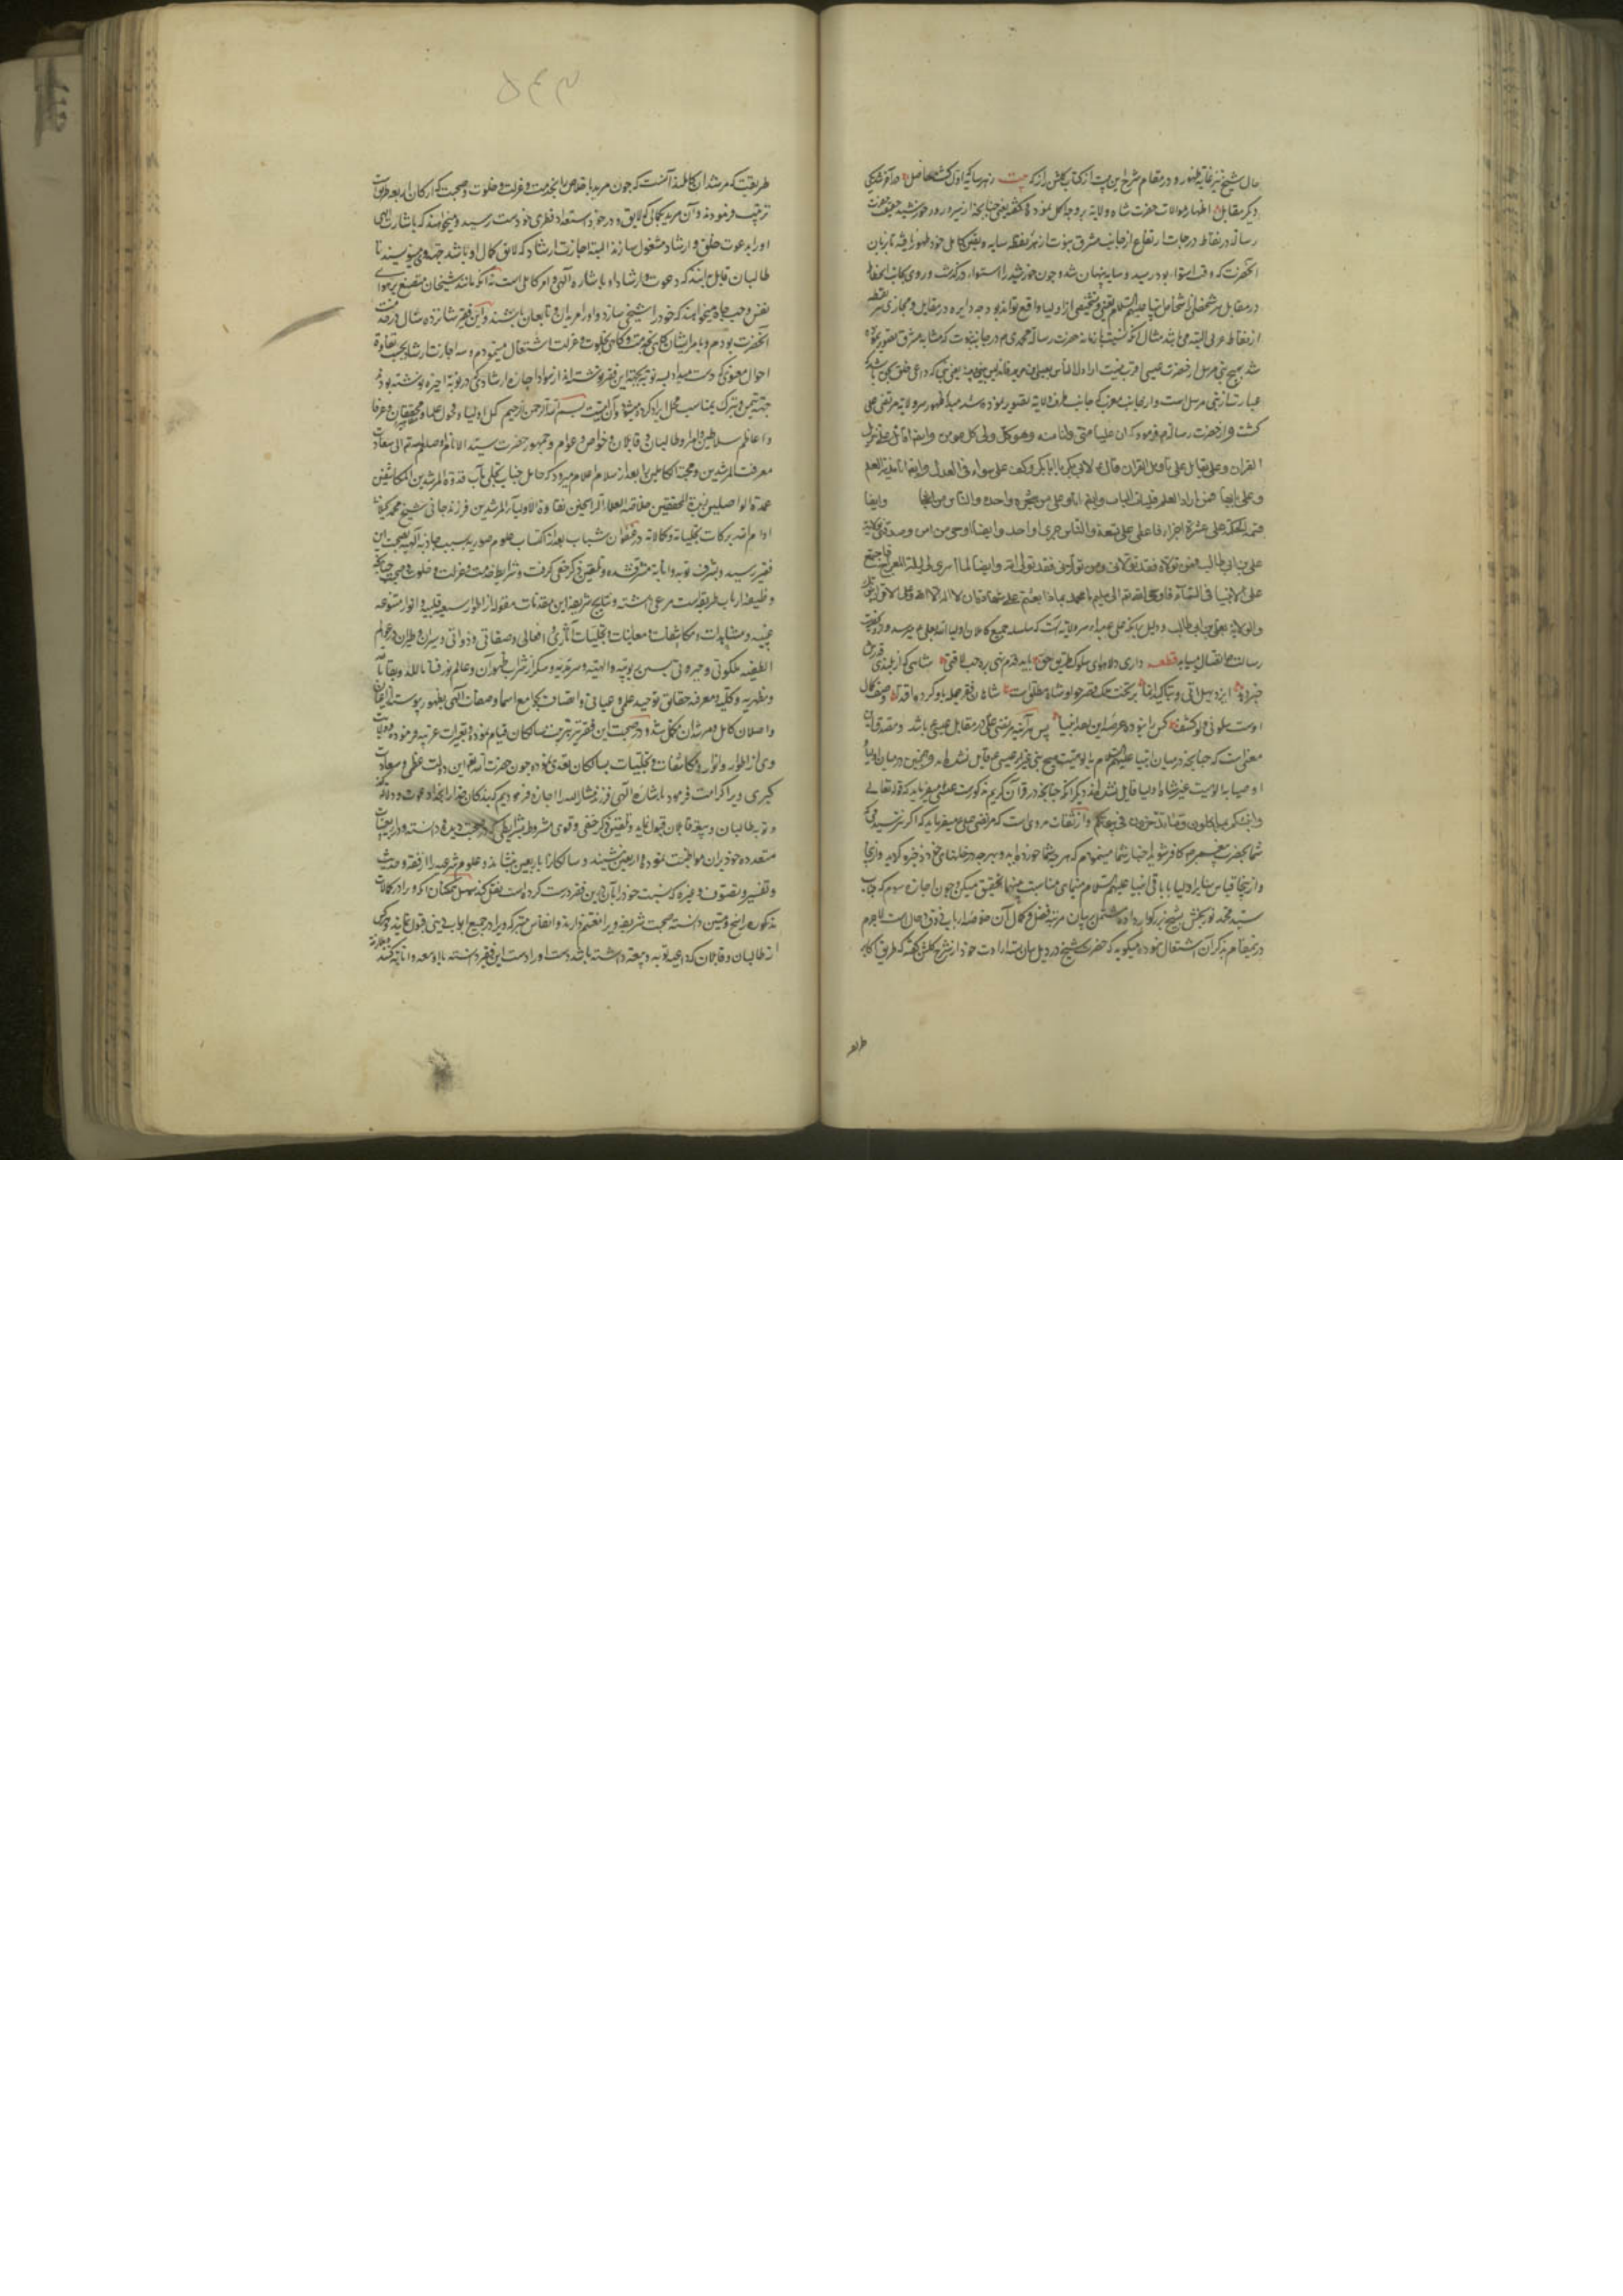 حال شیخ نیز غایة ظهور و در مقام شرح این بیت از کتاب گلشن راز که بیت ز هر سایه که اول گشت حاصل در آخر شد یکی
دیگر مقابل اظهار موالات حضرت شاه ولایة بر وجه اکمل نموده گفته یعنی چنانچه از سیر و دور خورشید حقیقت حضرت
رسالة در نقاط درجات ارتفاع از جانب مشرق نبوت از هر نقطه سایه و تعین کامل خود ظهور یافته تا زمان
آنحضرت که وقت استواء بود رسید و سایه پنهان شد و چون خورشید از استواء درگذشت و روی بجانب انحطاط
در مقابل هر شخصی از اشخاص انبیا علیهم السلام تعین و تشخصی از اولیا واقع تواند بود چه دایره در مقابل و محاذی هر نقطه
از نقاط غربی البته می باشد مثال آنکه نسبت با زمان حضرت رسالة محمدی در جانب نبوت که مشابه مشرق تصور نموده
شد هیچ نبی مرسل از حضرت عیسی اقرب نیست انا اولی الناس بعیسی بن مریم فانه لیس بینی و بینه نبی یعنی نبی که داعی خلق بحق باشد که
عبارت از نبی مرسل است و از جانب مغرب که جانب طرف ولایة تصور نموده شد مبدأ ظهور سر ولایة مرتضی علی
گشت و از حضرت رسالة فرمود که ان علیا منی وانا منه وهو ولی کل مومن وایضا انا اقاتل علی تنزیل
القران وعلی یقاتل علی تاویل القران قال لابی بکر یا ابابکر کفی وکف علی سواء فی العدل وایضا انا مدینة العلم
وعلی بابها فمن اراد العلم فلیات الباب وایضا انا وعلی من شجرة واحدة والناس من اشجار وایضا
قسمة الحکمة علی عشرة اجزاء فاعطی علی تسعة والناس جزءا واحدا وایضا اوصی من امن بی وصدقنی بولایة
علی بن ابی طالب فمن تولاه فقد تولانی ومن تولانی فقد تولی الله وایضا لما اسری بی لیلة المعراج فاجتمع
علی الانبیا فی السماء فاوحی الله تعالی سلهم یا محمد بماذا بعثتم قالوا علی شهادة ان لا اله الا الله وعلی الاقرار بنبوتک
والولایة لعلی بن ابی طالب و دلیل بر آنکه علی مبداء سر ولایة است که سلسله جمیع کاملان اولیاء الله بعلی میرسد و از حضرت
رسالت علی اتصال مییابد قطعه داری دلا هوای سلوک طریق حق باید قدم نهی بره حب لافتی شاهی که از بلندی قدرش
خبر دهد ایزد به هل اتی و بتاکید انما بر تخت ملک فقر چو او شاه مطلق است شاهان فقر جمله باو کرده اقتدا وصف کمال
اوست سلونی و لو کشف کس را نبوده غیر این بعد انبیا پس هر آینه مرتضی علی در مقابل عیسی باشد و مصدق این
معنی است که چنانچه در میان انبیا علیهم السلام بالوهیت هیچ نبی غیر از عیسی قایل نشدند و همچنین در میان اولیا
اوصیا بالوهیت غیر شاه اولیا قایل نشدند و دیگر آنکه چنانچه در قران کریم مذکور است عیسی میفرماید که قوله تعالی
وانبئکم بما تاکلون وما تدخرون فی بیوتکم و از ثقات مروی است که مرتضی علی میفرماید که اگر نترسیدمی که
شما بحضرت پیغمبر کافر شوید اخبار شما مینمودم که هر چه شما خورده اید و هر چه در خانهای خود ذخیره کرده اید و از اینجا
و از اینجا قیاس سایر اولیا با باقی انبیا علیهم السلام میتوان مناسبت بینهما تحقیق میکن و چون اجازه سوم که جناب
سید محمد نوربخش شیخ بزرگوار داده مشتمل بر بیان مرتبه فضل و کمال آن خلاصه ارباب ذوق و حال است لاجرم
در این مقام بذکر آن اشتغال نموده میگوید که حضرت شیخ در ذیل بیان ارادت خود از شرح گلشن گفته که طریق اکابر
طریقت
۵۴۳
طریقت که مرشدان کاملند آنست که چون مرید باخلاص را بخدمت و عزلت و خلوت و صحبت که ارکان اربعه طریقت
تربیت فرمودند و آن مرید بکمالی که لایق و در خور استعداد فطری خود است رسید و میخواهند که باشارت الهی
او را بدعوت خلق و ارشاد مشغول سازند البته اجازت ارشاد که لایق کمال او باشد جهة وی مینویسند تا
طالبان قابل بدانند که دعوت و ارشاد او باشاره الهی و امر کاملی است نه آنکه مانند شیخان متصنع بر هوای
نفس و حب جاه میخواهند که خود را شیخی سازد و او را مریدان و تابعان باشند و این فقیر شانزده سال در خدمت
آنحضرت بودم و بامر ایشان گاهی بخدمت و گاهی بخلوت و عزلت اشتغال مینمودم و سه اجازت ارشاد بحسب تفاوة
احوال معنوی که دست میداد بسه نوبت بجهة این فقیر نوشته اند از آنها اجازه ارشادی که در نوبة اخیره نوشته بودند
جهة تیمن و تبرک بمناسبت محل ایراد کرده میشود و آن اینست بسم الله الرحمن الرحیم کمل اولیا و فحول علما و محققان و عرفا
و اعاظم سلاطین و امرا و طالبان و قابلان و خواص و عوام و جمهور حضرت سید الانام صلوات الله
معرفت المرشدین و محجة الکاملین را بعد از سلام اعلام میرود که حامل جناب تجلی مآب قدوة المرشدین المکاشفین
عمدة الواصلین زبدة المحققین خلاصة العلماء الراسخین نقاوة الاولیاء المرشدین فرزند جانی شیخ محمد گیلانی
ادام الله برکات تجلیاته و کمالاته در عنفوان شباب بعد از اکتساب علوم صوریه بسبب جاذبه الهیه بصحبت این
فقیر رسید و بشرف توبه و انابة مشرف شده و تلقین ذکر خفی گرفت و شرایط خدمت و عزلت و خلوت و صحبت چنانکه
وظیفه ارباب طریقت است مرعی داشته و نتایج شریفه این مقدمات مقوله از اطوار سبعه قلبیه و انوار متنوعه
غیبیه و مشاهدات و مکاشفات و معاینات و تجلیات آثاری و افعالی و صفاتی و ذواتی و سیران و طیران در عوالم
لطیفه ملکوتی و جبروتی و الهیه و سرمدیه و سکر از شراب طهور آن و عالم نور فنا بالله و بقا بالله
و مظهریه و کلیه و معرفه حقایق توحید علمی و عیانی و اتصاف بجوامع اسما و صفات الهی بظهور پیوسته از اعیان
واصلان کامل و مرشدان مکمل شد و در صحبت این فقیر بتربیت سالکان قیام نموده و تعبیرات غریبه فرموده
وی از اطوار و انوار و مکاشفات و تجلیات بسالکان تعدی نموده چون حضرت الله تعالی این دولت عظمی و سعادت
کبری ویرا کرامت فرمود باشاره الهی فرزند مشار الیه را اجازه فرمودیم که بندگان خدا را بخدا دعوت و دلالت کند
و توبه طالبان و بیعة قابلان قبول نماید و تلقین ذکر خفی و قوی مشروط بشرایطی که در صحبت دیده و دانسته و در اربعینات
متعدده خود بدان مواظبت نموده و اربعین نشیند و سالکان را باربعین بنشاند و علوم شرعیه را از فقه و حدیث
و تفسیر و تصوف و غیره که نسبت خود را بآن درین فقر درست کرده است نقل کند سبیل محبان آنکه ویرا در کمالات
مذکوره راسخ و متین دانسته صحبت شریفه ویرا مغتنم دارند و انفاس متبرکه ویرا در جمیع ابواب دینی قبول نمایند و هر کس
از طالبان و قابلان که داعیه توبه و بیعة داشته باشد دست او را دست این فقیر دانسته با او بیعة و انابة کنند